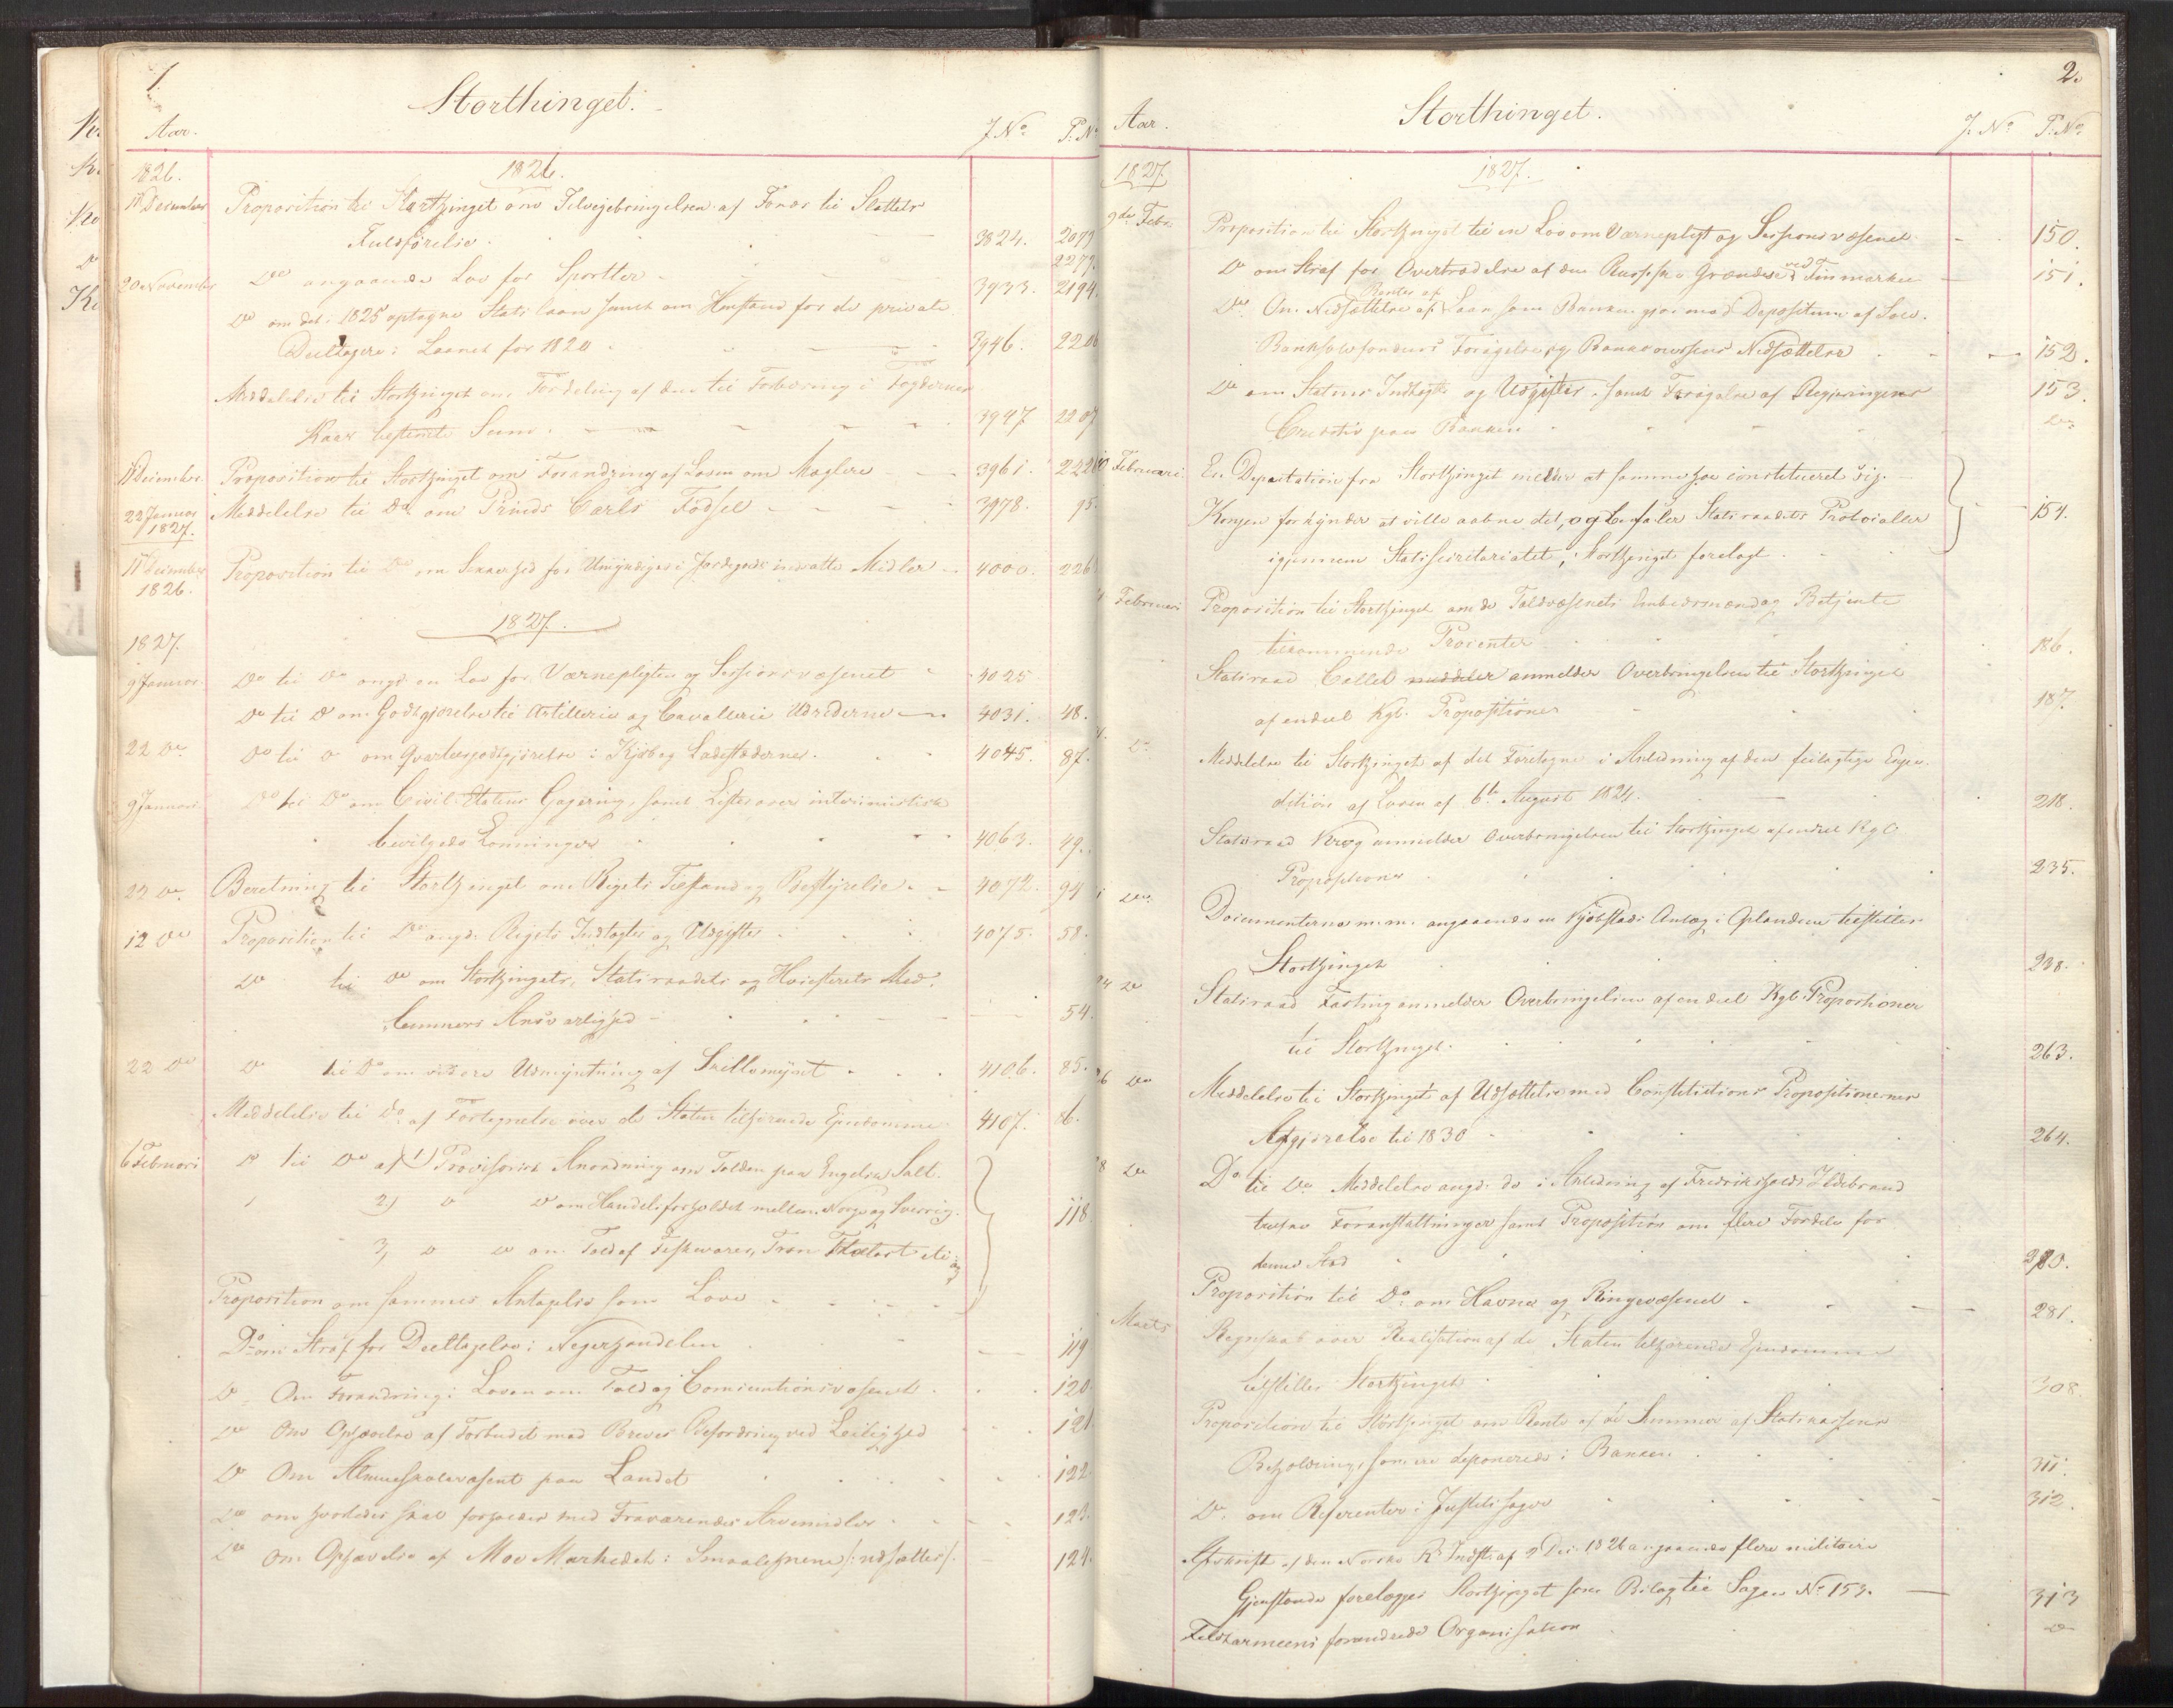 1.
Storthinget.
Aar. J. No P. No
1826. 1826.
18 December Proposition til Storthinget om Tilveiebringelsen af Fonds til Slottets
Fuldførelse. 3824. 2079
2277.
20 November Do angaaende Lov for Sportler 3933. 2194.
Do om det i 1825 optagne Stats laan samt om Henstand for de private
Deeltagere i Laanet for 1820 3946. 220
Meddelelse til Storthinget om Fordeling af den til Forbedring i Fogdernes
Kaar bestemte Sum. 3947 2207
18 December Proposition til Storthinget om Forandring af Loven om Maglere 3961. 222
22 Januar 1827. Meddelelse til Do om Prinds Carls Fødsel 3978. 95.
18 December 1826. Proposition til Do om Sikkerhed for Umyndiges i Jordegods indsatte Midler 4000. 226
1827.
1827.
9 Januar. Do til Do angd en Lov for Værnepligten og Sessionsvæsenet 4025
Do til Do om Godtgjørelse til Artillerie og Cavallerie Udrederne 4031. 48.
22 Do Do til Do om Qvarteergodtgjørelse i Kjøb og Ladestæderne. 4045. 87.
9 Januar. Do til Do om Civil Etatens Gagering, samt Lister over interimistisk
bevilgede Lønninger 4063. 49.
22 Do Beretning til Storthinget om Rigets Tilstand og Bestyrelse. 4072. 94
12 Do Proposition til Do angd. Rigets Indtægter og Udgifter 4075. 58.
Do til Do om Storthingets, Statsraadets og Høiesterets Med-
lemmers Ansvarlighed 54.
22 Do Do til Do om videre Udmyntning af Skillemynt 4106. 85.
Meddelelse til Do af Fortegnelse over de Staten tilhørende Eiendomme 4107. 86.
6 Februari Do til Do af 1) Provisorisk Anordning om Tolden paa Engelsk Salt.
2) Do Do om Handelsforholdet mellem Norge og Sverrig. 118.
3, Do Do om Told af Fiskevarer, Tran Trælast etc og
Proposition om sammes Antagelse som Love
Do om Straf for Deeltagelse i Negerhandelen 119
Do Om Forandring i Loven om Told og Consumtionsvæsenet 120.
Do Om Ophævelse af Forbudet mod Breves Befordring ved Leilighed 121
Do Om Almueskolevæsenet paa Landet 122
Do om hvorledes skal forholdes med Fraværendes Arvemidler 123.
Do Om Ophævelse af Mos Markedet i Smaalehnene /: udsættes /: 124.
2.
Storthinget.
Aar. J. No P. No
1827 1827.
9de Febr. Proposition til Storthinget til en Lov om Værnepligt og Sessionsvæsenet 150.
Do om Straf for Overtrædelse af den Russiske Grændse ved Finmarken 151.
Do Om Nedsættelse af Renter af Laan som Banken gjør mod Depositum af Sølv.
Banksølvfondens Forøgelse og Bankcoursens Nedsættelse 152.
Do om Statens Indtægter og Udgifter, samt Forøgelse af Regjeringens 153.
Creditiv paa Banken Do
10 Februari. En Deputation fra Storthinget melder at samme har constitueret sig.
Kongen forkynder at ville aabne det, og befaler Statsraadets Protocoller 154.
igjennem Statssecretariatet, Storthinget forelagt
Februari Proposition til Storthinget om de Toldvæsenets Embedsmænd og Betjente
tilkommende Procenter 186.
Statsraad Collet meddeler anmelder Overbringelsen til Storthinget
af endeel Kgl. Propositioner 187.
Do Meddelelse til Storthinget af det Foretagne i Anledning af den feilagtige Expe-
dition af Loven af 6te August 1824. 218.
Statsraad Krog anmelder Overbringelsen til Storthinget af endeel Kgl
Propositioner 235.
Do Documenterne m. m. angaaende en Kjøbstads Anlæg i Oplandene tilstilles
Storthinget 238.
24 Do Statsraad Fasting anmelder Overbringelsen af en deel Kgl. Propositioner
til Storthinget. 263.
26 Do Meddelelse til Storthinget af Udsættelse med Constitutions Propositionernes
Afgjørelse til 1830 264.
28 Do Do til Do Meddelelse angd. de i Anledning af Fredrikshalds Ildebrand
trufne Foranstaltninger samt Proposition om flere Fordele for
denne Stad 280.
Proposition til Do om Havne og Ringevæsenet 281.
Marts Regnskab over Realisation af de Staten tilhørende Eiendomme
tilstilles Storthinget 308.
Proposition til Storthinget om Rente af de Summer af Statskassens
Beholdning, som ere deponerede i Banken 311.
Do om Referenter i Justitssager 312.
Afskrift af den Norske R Indst: af 9 Dec. 1826 angaaende flere militaire
Gjenstande forelægges Storthinget som Bilag til Sagen No 153. 313
Feldtarmeens forandrede Organisation Do